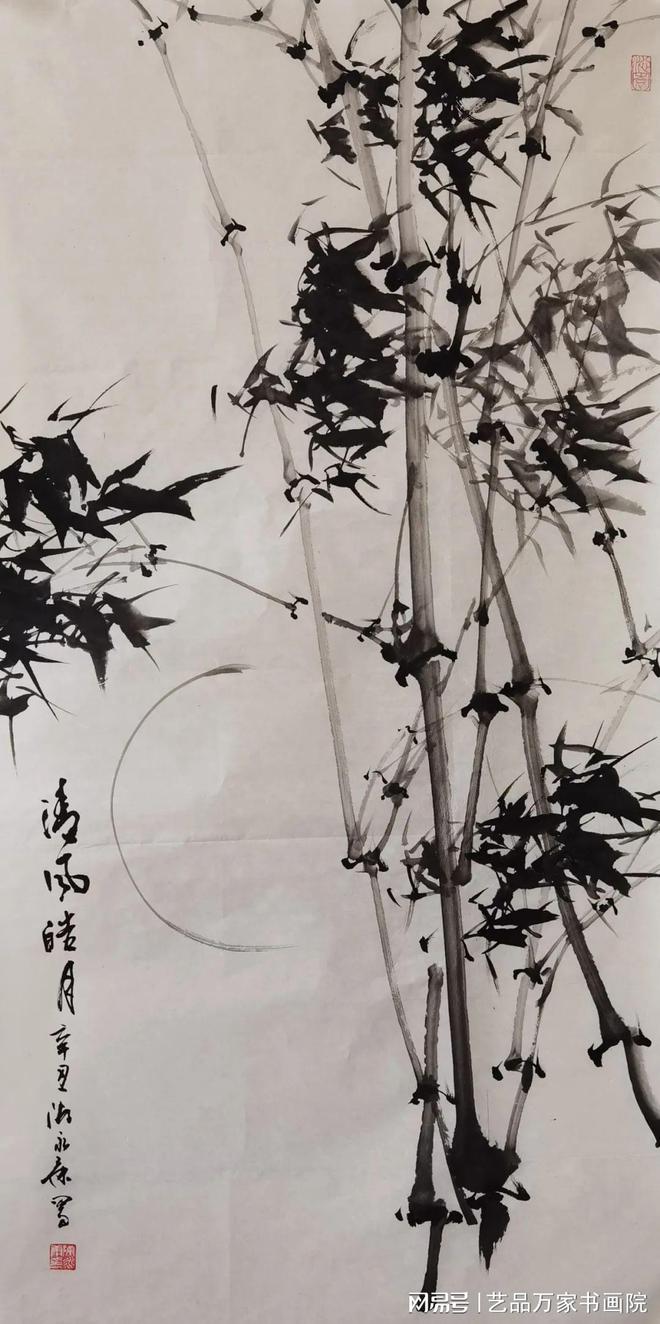 清风皓月
辛丑 永康写
网易号 | 艺品万家书画院